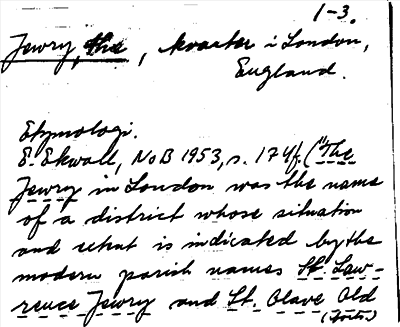 1-3.
Jewry, the, kvarter i London,
England.
Etymologi.
E. Ekwall, NoB 1953, s. 174f. ("The
Jewry in London was the name
of a district whose situation
and extent is indicated by the
modern parish names St. Law-
rence Jewry and St. Olave Old
(Forts.)